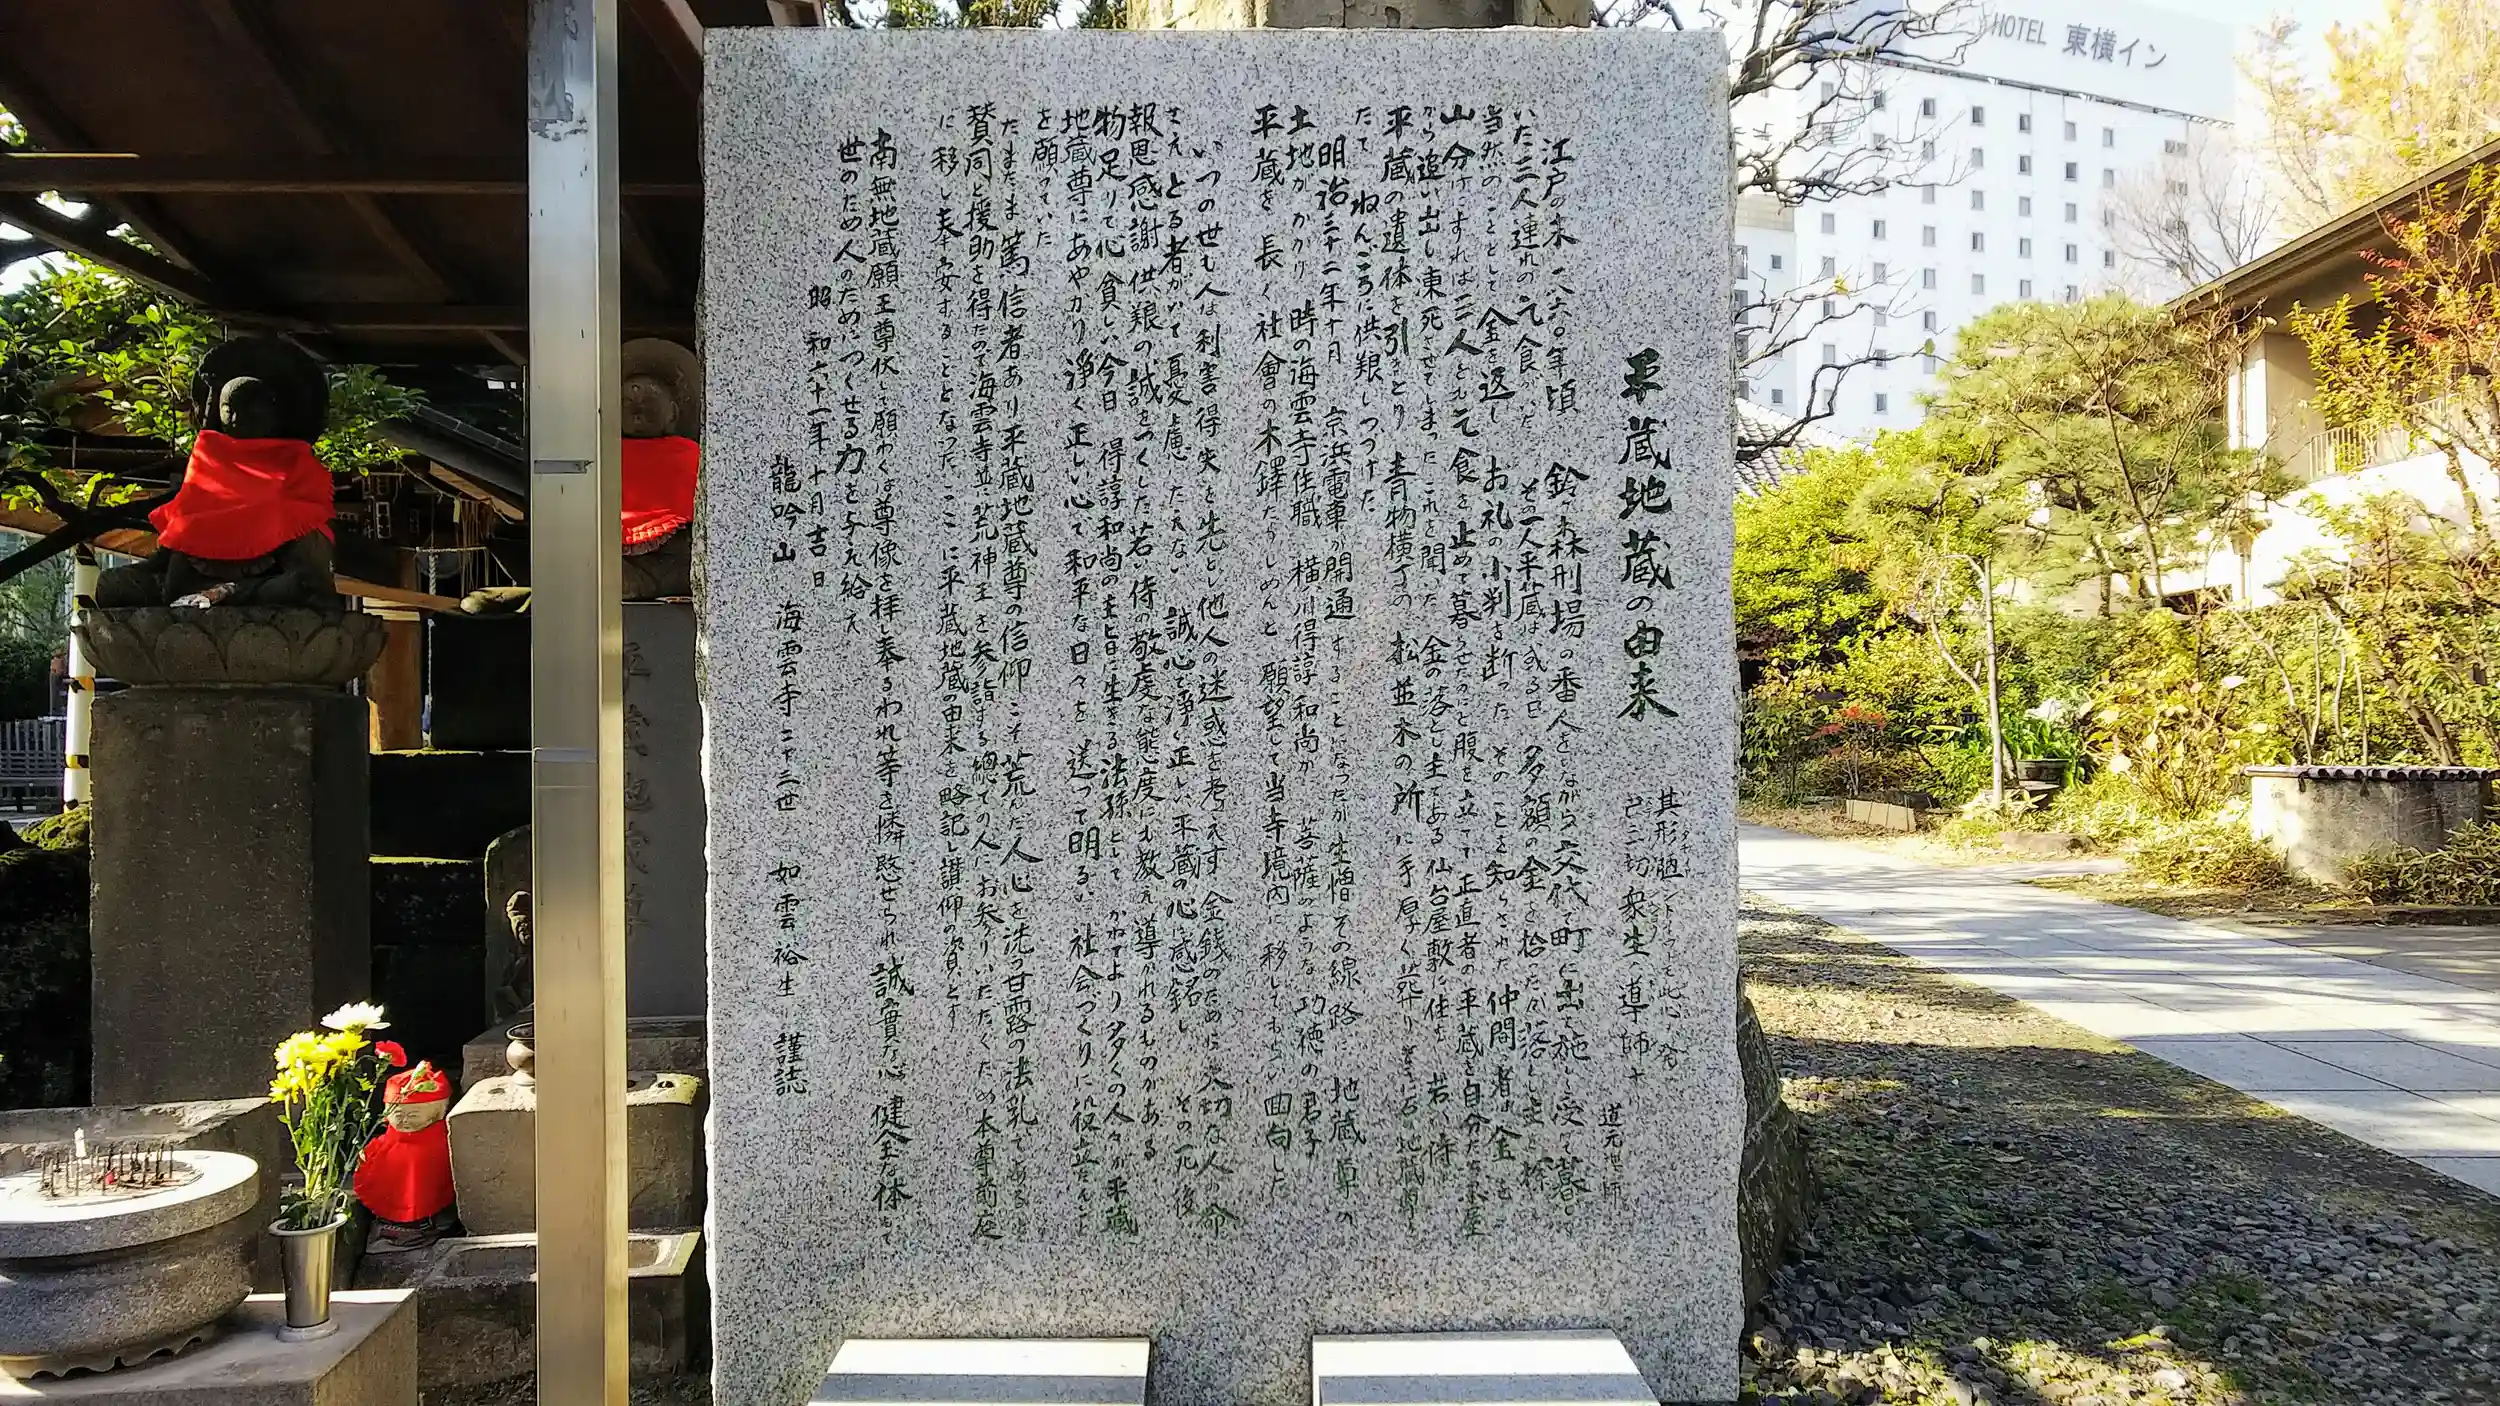 平蔵地蔵の由来
其形陋シト云フトモ此心ヲ発
已ニ一切衆生ノ導師ナリ
道元禅師
江戸の末一八六〇年頃 鈴ヶ森刑場の番人をしながら交代で町に出て施しを受けて暮して
いた三人連れの乞食がいた その一人平蔵は或る日 多額の金を拾ったが落とし主を探し
当然のこととして金を返し お礼の小判を断った そのことを知らされた 仲間の者は金を
山分けにすれば三人とも乞食を止めて暮らせたのにと腹を立てて正直者の平蔵を自分たちの小屋
から追い出し凍死させてしまった これを聞いた 金の落とし主である仙台屋敷に住む 若い侍が
平蔵の遺体を引きとり 青物横丁の 松並木の所に手厚く葬り そこに石の地蔵尊を
たて ねんごろに供養しつづけた
明治三十二年十月 京浜電車が開通することになったが生憎その線路に 地蔵尊の
土地がかかり 時の海雲寺住職 横川得諄和尚が 菩薩のような功徳の君子
平蔵を 長く社會の木鐸たらしめんと 願望して当寺境内に 移してもらい回向した
いつの世も人は利害得失を先とし他人の迷惑を考えず 金銭のために 大切な人の命
さえとる者がいて憂慮にたえない 誠心で浄く正しい平蔵の心に感銘し その死後
報恩感謝 供養の誠をつくした若い侍の敬虔な態度にも教え導かれるものがある
物足りて心貧しい今日 得諄和尚の主旨に生きる法孫として かねてより多くの人々が平蔵
地蔵尊にあやかり 浄く正しい心で和平な日々を 送って明るい社会づくりに役立たんこと
を願っていた
たまたま篤信者あり平蔵地蔵尊の信仰こそ荒んだ人心を洗う甘露の法乳であると
賛同と援助を得たので海雲寺並に荒神王を参詣する總ての人にお参りいただくため本尊前庭
に移し奉安することとなった ここに平蔵地蔵の由来を略記し讃仰の資とす
南無地蔵願王尊伏して願わくは尊像を拝し奉るわれ等を憐愍せられ誠實な心 健全な体もて
世のため人のためにつくせる力を与え給え
昭和六十一年十月吉日
龍吟山 海雲寺二十三世 如雲裕生 謹誌
HOTEL 東横イン
平蔵地蔵尊